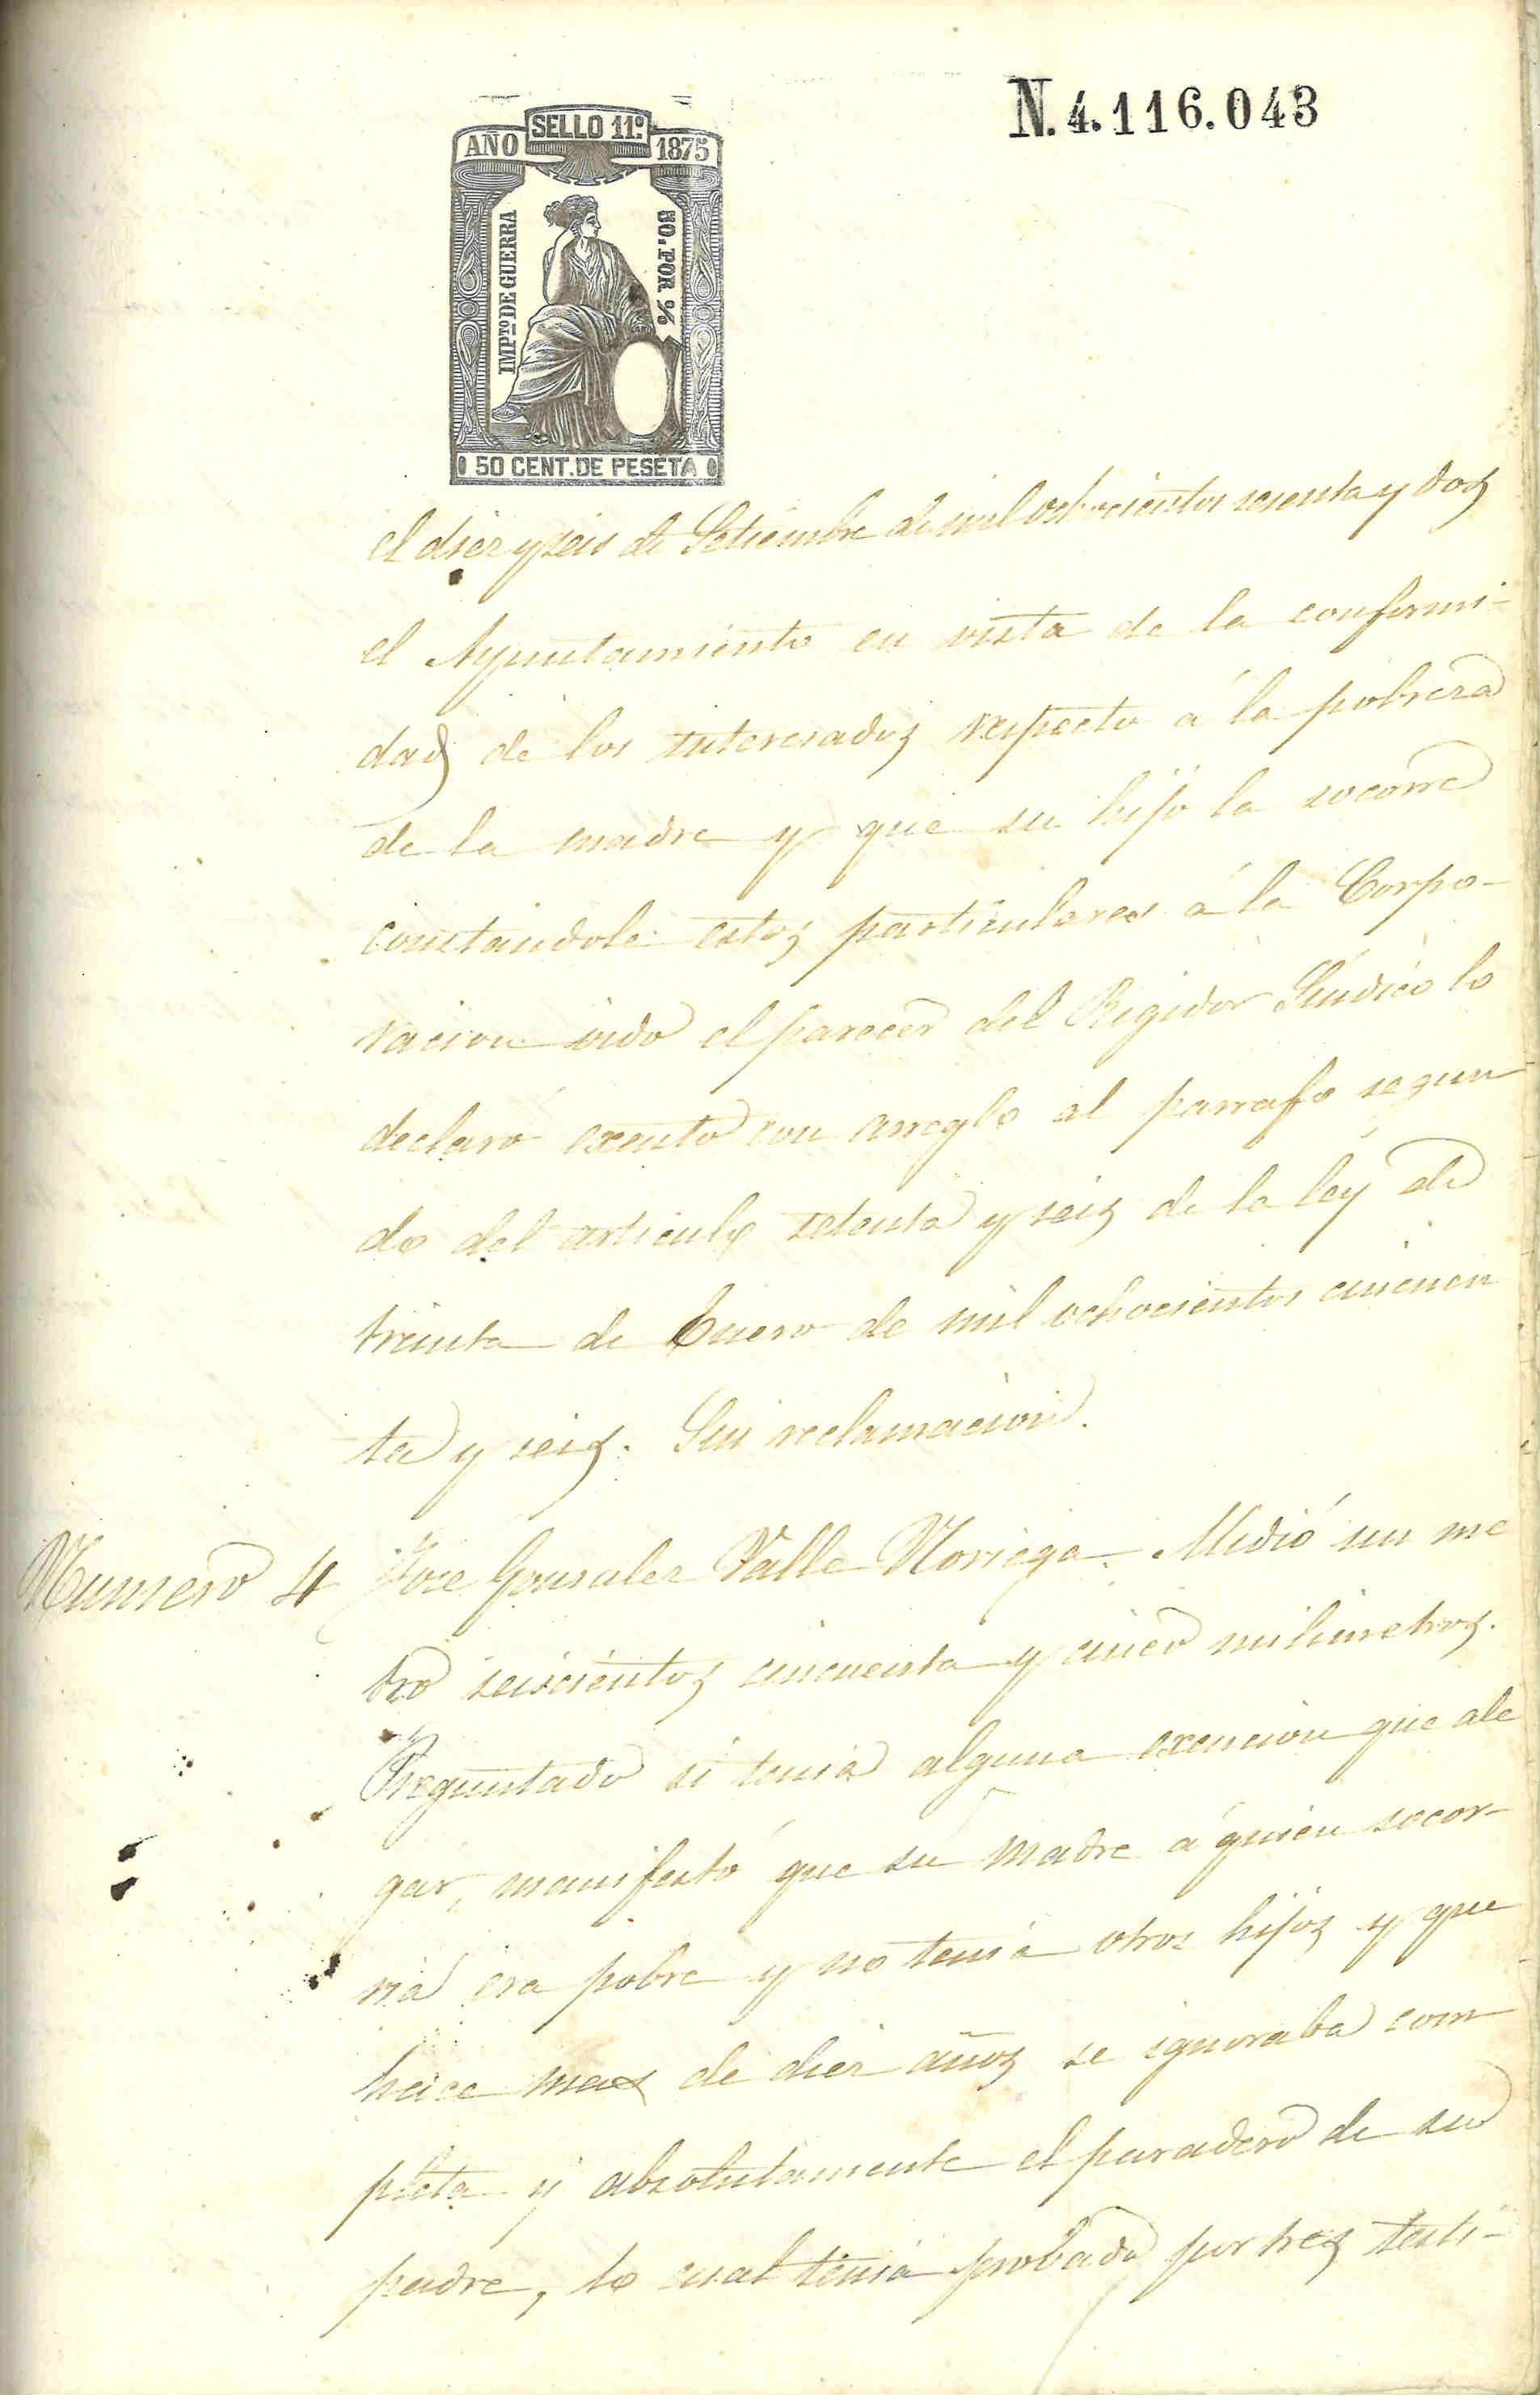 N. 4.116.043
SELLO 11º
AÑO 1875
IMPTO DE GUERRA
50. POR %
50 CENT. DE PESETA
el diez y seis de Setiembre de mil ochocientos sesenta y dos
el Ayuntamiento en vista de la conformi-
dad de los interesados respecto á la pobreza
de la madre y que su hijo la socorre
constandole estos particulares á la Corpo-
racion oido el parecer del Regidor Síndico lo
declaró exento con arreglo al parrafo segun
do del articulo setenta y seis de la ley de
treinta de Enero de mil ochocientos cincuen
ta y seis. Sin reclamacion.
Numero 4 Jose Gonzalez Valle Noriega. Midió un me
tro seiscientos cincuenta y cinco milimetros.
Preguntado si tenia alguna exencion que ale
gar, manifestó que su madre á quien socor-
ria era pobre y no tenia otros hijos y que
hace mas de diez años se ignoraba com
pleta y absolutamente el paradero de su
padre, lo cual tenia probado por tres testi-